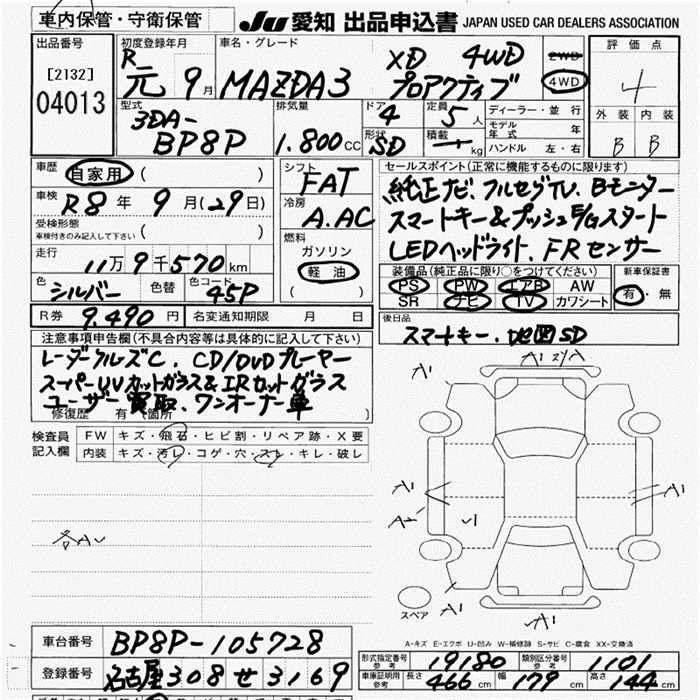 車内保管・守衛保管 JU 愛知 出品申込書 JAPAN USED CAR DEALERS ASSOCIATION
出品番号 初度登録年月 車名・グレード 評価点
[2132] R XD 4WD 2WD
04013 元 9月 MAZDA3 プロアクティブ 4WD 4
型式 排気量 ドア 4 定員 5人 ディーラー・並行 外装 内装
3DA- モデル年式 年
BP8P 1.800cc 形状 SD 積載 kg ハンドル 左・右 B B
車歴 自家用 ( ) シフト FAT セールスポイント(正常に機能するものに限ります)
車検 R8年 9月(29日) 冷房 A.AC 純正ナビ、フルセグTV、Bモニター
受検形態 スマートキー&プッシュE/Gスタート
車検付きのみ記入して下さい ( ) 燃料 LEDヘッドライト、FRセンサー
走行 11万9千570km ガソリン 装備品(純正品に限り○をつけてください) 新車保証書
色 シルバー 色替 色コード 45P 軽油 PS PW エアB AW 有・無
( ) SR ナビ TV カワシート
R券 9.490円 名変通知期限 月 日 後日品
注意事項申告欄(不具合内容等は具体的に記入して下さい) スマートキー、地図SD
レーダークルーズC、CD/DVDプレーヤー
スーパーUVカットガラス&IRカットガラス
ユーザー買取、ワンオーナー車
修復歴 有(箇所 )
検査員 FW キズ・飛石・ヒビ割・リペア跡・X要
記入欄 内装 キズ・汚レ・コゲ・穴・スレ・キレ・破レ
A1 A1
A1 A1
各A
A1
スペア
A-キズ E-エクボ U-凹み W-補修跡 S-サビ C-腐食 XX-交換済
車台番号 BP8P-105728
形式指定番号 参考 19180 類別区分番号 参考 1101
登録番号 名古屋308せ3169
車庫証明用 参考 長さ 466cm 幅 179cm 高さ 144cm